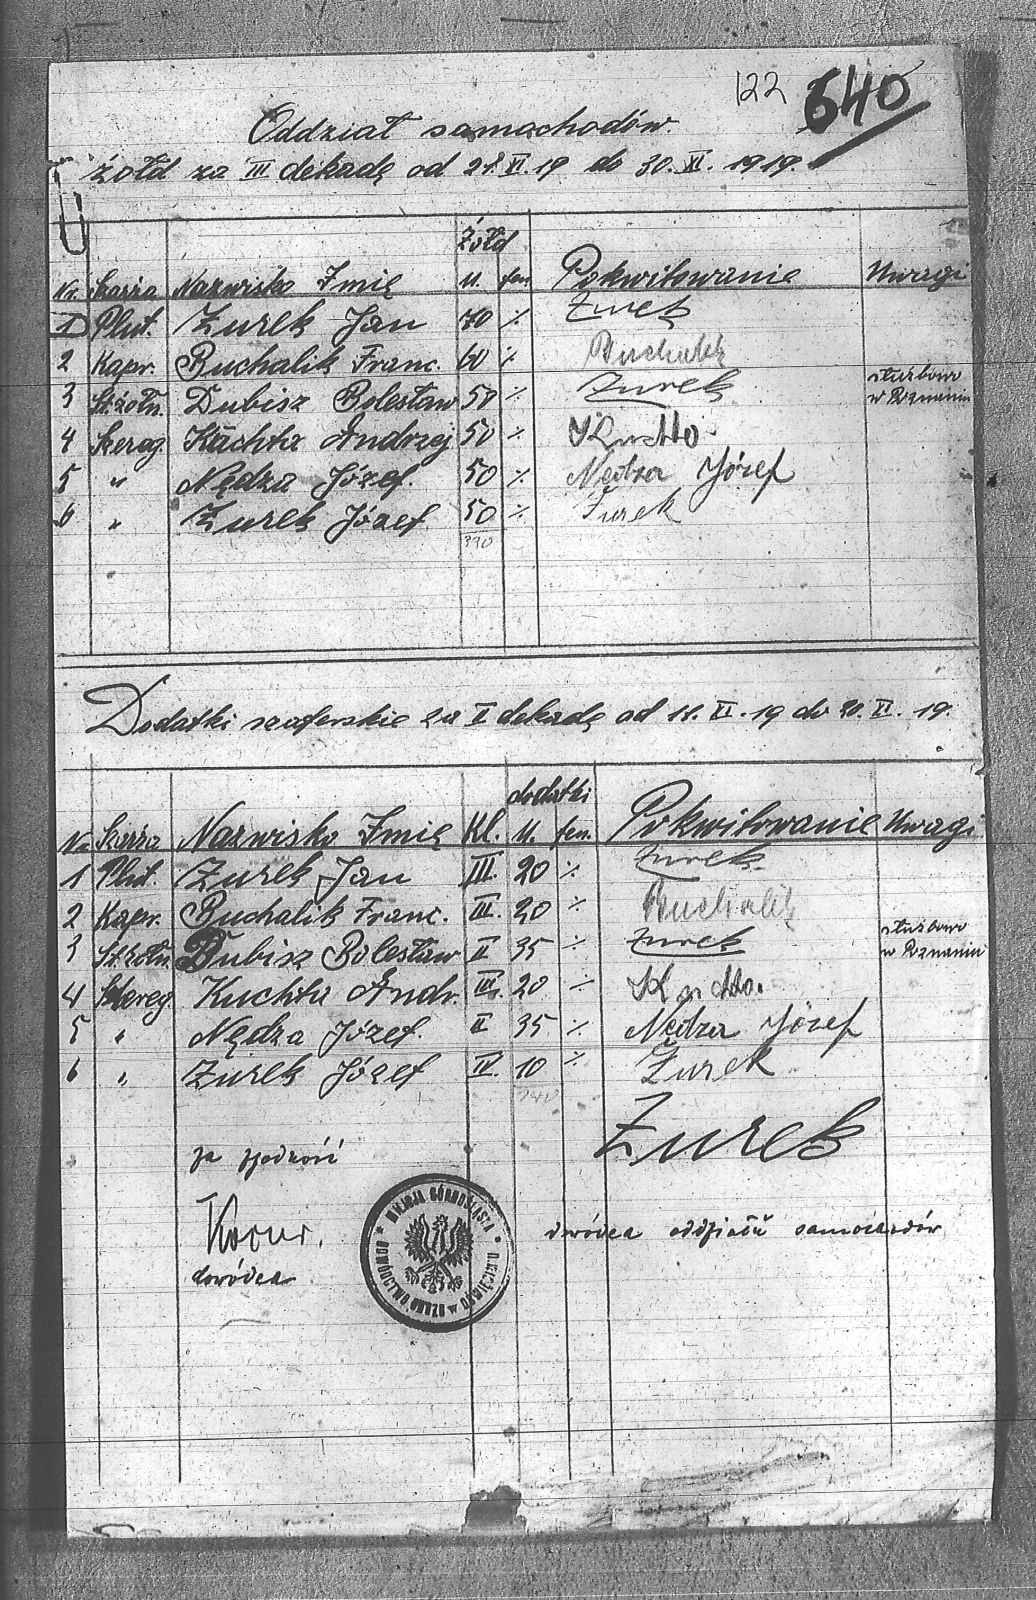 122 640
Oddział samochodów.
żołd za III dekadę od 21.XI.19 do 30.XI.1919.
Żołd
Nr. Szarża Nazwisko Imię M. fen. Pokwitowanie Uwagi
1 Plut. Żurek Jan 70 % Żurek
2 Kapr. Buchalik Franc. 60 % Buchalik
3 St.żołn. Dubisz Bolesław 50 % Żurek służbowo w Poznaniu
4 Szereg. Kuchta Andrzej 50 % Kuchta
5 " Nędza Józef. 50 % Nędza Józef
6 " Żurek Józef 50 % Żurek
330
Dodatki szoferskie za II dekadę od 11.XI.19 do 20.XI.19.
dodatki
Nr. Szarża Nazwisko Imię Kl. M. fen. Pokwitowanie Uwagi
1 Plut. Żurek Jan III. 20 % Żurek
2 Kapr. Buchalik Franc. III. 20 % Buchalik
3 St.żołn. Dubisz Bolesław II 35 % Żurek służbowo w Poznaniu
4 Szereg. Kuchta Andr. III. 20 % Kuchta.
5 " Nędza Józef. II 35 % Nędza Józef
6 " Żurek Józef IV. 10 % Żurek
140
Żurek
za zgodność
dowódca oddziału samochodów
dowódca
MILICJA GÓRNOŚLĄSKA * DOWÓDZTWO OBOZU W